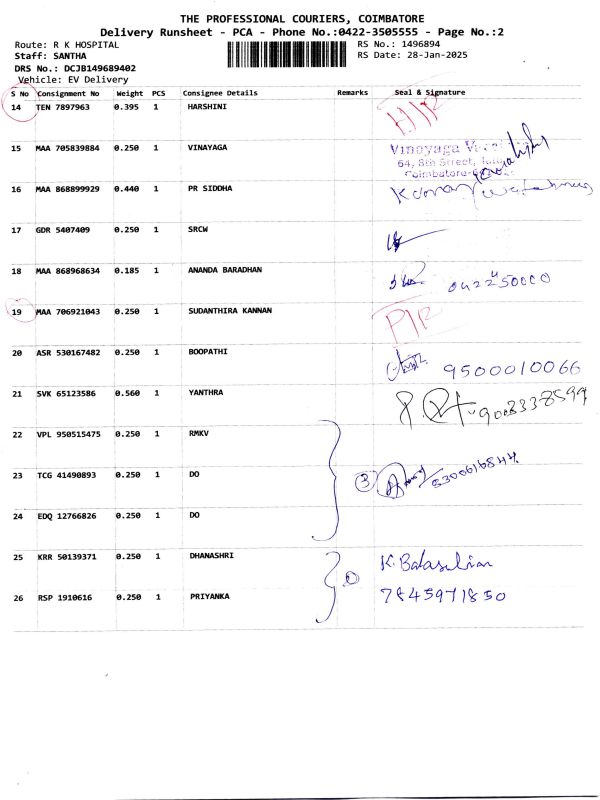 THE PROFESSIONAL COURIERS, COIMBATORE
Delivery Runsheet - PCA - Phone No.:0422-3505555 - Page No.:2
Route: R K HOSPITAL RS No.: 1496894
Staff: SANTHA RS Date: 28-Jan-2025
DRS No.: DCJB149689402
Vehicle: EV Delivery
S No Consignment No Weight PCS Consignee Details Remarks Seal & Signature
14 TEN 7897963 0.395 1 HARSHINI
15 MAA 705839884 0.250 1 VINAYAGA Vinayaga
64, 8th Street,
Coimbatore-
16 MAA 868899929 0.440 1 PR SIDDHA
17 GDR 5407409 0.250 1 SRCW
18 MAA 868968634 0.185 1 ANANDA BARADHAN
19 MAA 706921043 0.250 1 SUDANTHIRA KANNAN
20 ASR 530167482 0.250 1 BOOPATHI 9500010066
21 SVK 65123586 0.560 1 YANTHRA
22 VPL 950515475 0.250 1 RMKV
23 TCG 41490893 0.250 1 DO 3
24 EDQ 12766826 0.250 1 DO
25 KRR 50139371 0.250 1 DHANASHRI
26 RSP 1910616 0.250 1 PRIYANKA 7845971850